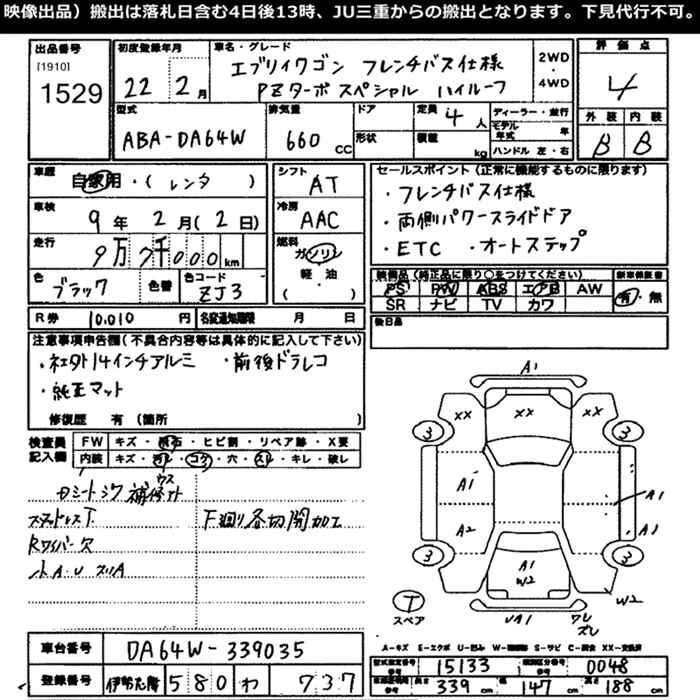 映像出品）搬出は落札日含む4日後13時、JU三重からの搬出となります。下見代行不可。
出品番号
[1910]
1529
初度登録年月
22 年 2 月
車名・グレード
エブリイワゴン フレンチバス仕様
PZターボスペシャル ハイルーフ
2WD
・
4WD
評価点
4
型式
ABA-DA64W
排気量
660 cc
ドア
形状
定員
4 人
積載
kg
ディーラー・並行
モデル年式 年
ハンドル 左・右
外装 内装
B B
車歴
自家用・(レンタ )
シフト
AT
車検
9年 2月(2日)
冷房
AAC
走行
9万7千000km
燃料
ガソリン
軽・油
( )
色
ブラック
色替
色コード
ZJ3
セールスポイント（正常に機能するものに限ります）
・フレンチバス仕様
・両側パワースライドドア
・ETC ・オートステップ
装備品（純正品に限り○をつけてください）
PS PW ABS エアB AW
SR ナビ TV カワ
新車保証書
有・無
R券 10.010 円
名変通知期限 月 日
後日品
注意事項申告欄（不具合内容等は具体的に記入して下さい）
・社外14インチアルミ ・前後ドラレコ
・純正マット
修復歴 有（箇所 ）
検査員
記入欄
FW キズ・飛石・ヒビ割・リペア跡・X要
内装 キズ・汚レ・コゲ・穴・スレ・キレ・破レ
補修
スタッドレスT.
Rワイパー欠
小A・U
下廻り各切開加工
A1
XX XX XX
3 3
A1
A1
A2
A1
3 3
A1
W2
W2
T
スペア
UA1
A－キズ E－エクボ U－凹ミ W－補修跡 S－サビ C－腐食 XX－交換済
車台番号
DA64W-339035
登録番号
580 わ 737
型式指定番号
15133
類別区分番号
0048
長さ 339 cm
幅 147 cm
高さ 188 cm